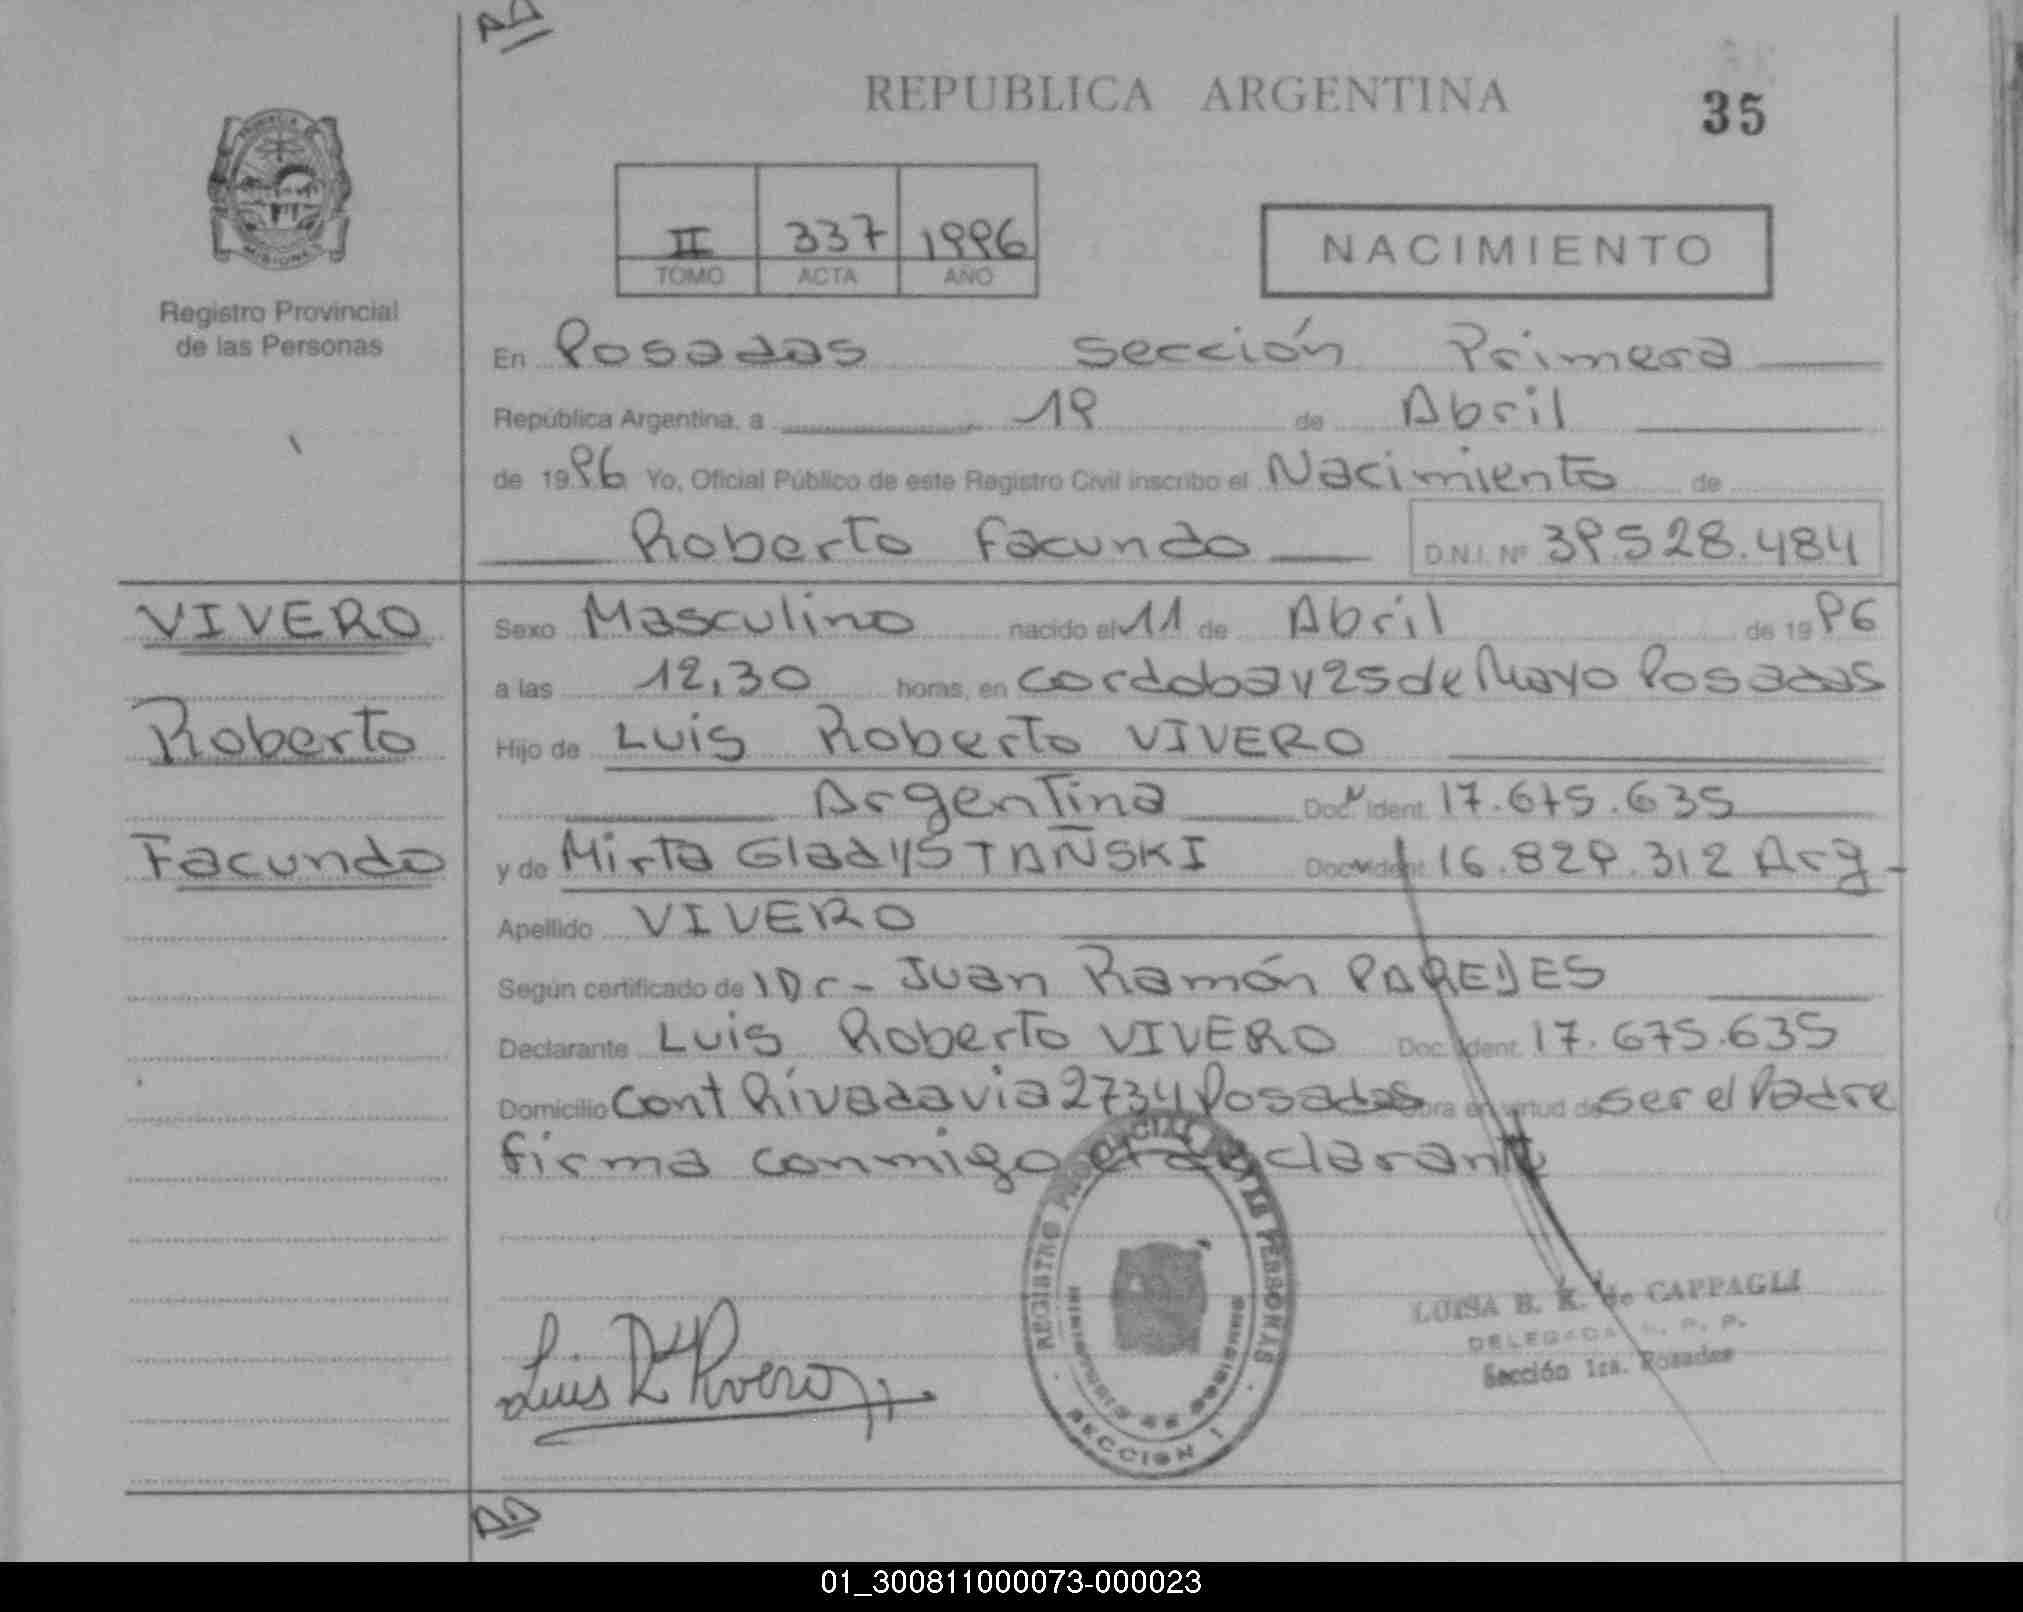 AD
REPUBLICA ARGENTINA
35
PROVINCIA DE MISIONES
Registro Provincial
de las Personas
II 337 1996
TOMO ACTA AÑO
NACIMIENTO
En Posadas sección Primera
República Argentina, a 19 de Abril
de 1996 Yo, Oficial Público de este Registro Civil inscribo el Nacimiento de
Roberto Facundo D.N.I. Nº 39.528.484
VIVERO
Roberto
Facundo
Sexo Masculino nacido el 11 de Abril de 1996
a las 12,30 horas, en Cordoba y 25 de Mayo Posadas
Hijo de Luis Roberto VIVERO
Argentina Doc. Ident. 17.675.635
y de Mirta Gladys TAÑSKI Doc. Ident 16.829.312 Arg-
Apellido VIVERO
Según certificado de 1 Dr- Juan Ramón PAREDES
Declarante Luis Roberto VIVERO Doc. Ident. 17.675.635
Domicilio Cont Rivadavia 2734 Posadas obra en virtud de ser el Padre
firma conmigo el declarante
Luis Rto Vivero
REGISTRO PROVINCIAL DE LAS PERSONAS
MINISTERIO DE GOBIERNO
SECCION 1
LUISA B. K. de CAPPAGLI
DELEGADA R. P. P.
Sección 1ra. Posadas
AD
01_300811000073-000023